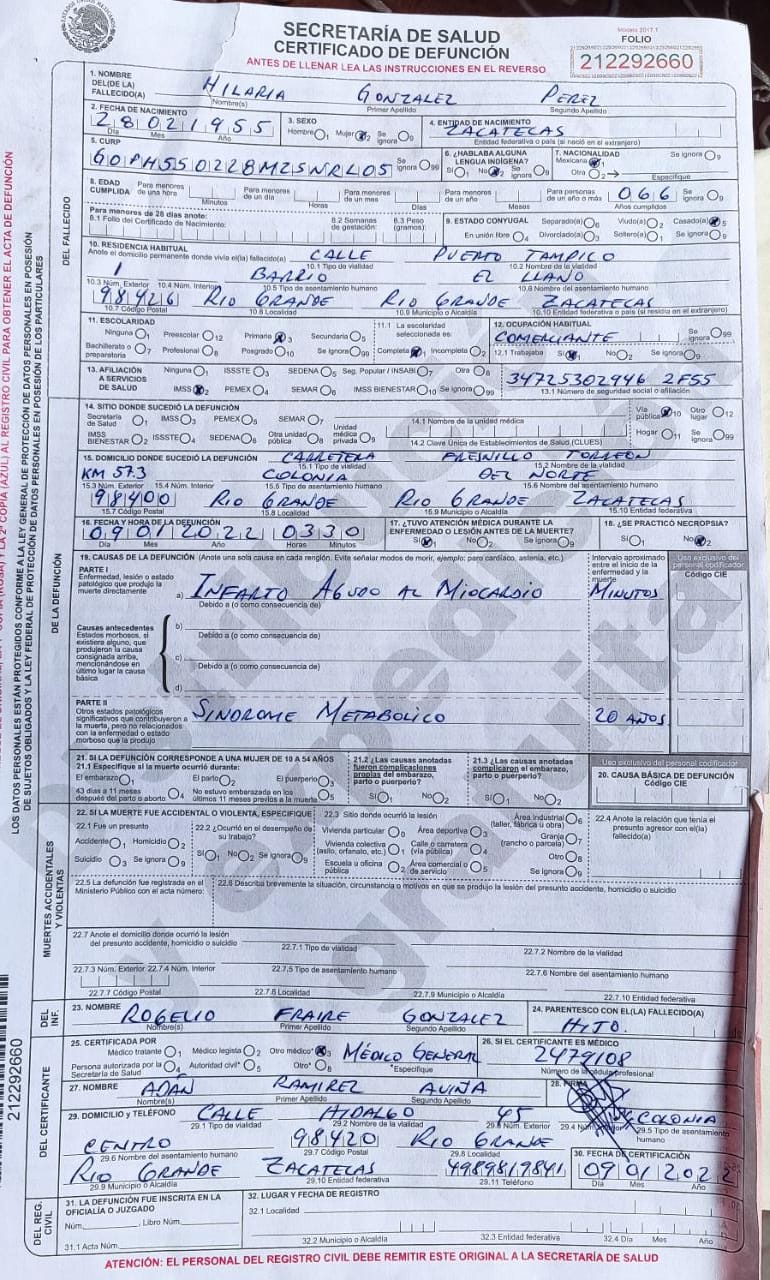 SECRETARÍA DE SALUD
CERTIFICADO DE DEFUNCIÓN
ANTES DE LLENAR LEA LAS INSTRUCCIONES EN EL REVERSO
Modelo 2017.1
FOLIO
212292660
1. NOMBRE DEL(DE LA) FALLECIDO(A) HILARIA GONZALEZ PEREZ
Nombre(s) Primer Apellido Segundo Apellido
2. FECHA DE NACIMIENTO 28021955 3. SEXO Hombre 1 Mujer 2 Se ignora 9 4. ENTIDAD DE NACIMIENTO ZACATECAS
Día Mes Año Entidad federativa o país (si nació en el extranjero)
5. CURP GOPH550228MZSNRL05 Se ignora 99 6. ¿HABLABA ALGUNA LENGUA INDÍGENA? SI 1 No 2 Se ignora 9 7. NACIONALIDAD Mexicana 1 Otra 2 Se ignora 9
Especifique
8. EDAD CUMPLIDA Para menores de una hora Para menores de un día Para menores de un mes Para menores de un año Para personas de un año o más 066 Se ignora 9
Minutos Horas Días Meses Años cumplidos
Para menores de 28 días anote:
8.1 Folio del Certificado de Nacimiento: 8.2 Semanas de gestación: 8.3 Peso (gramos):
9. ESTADO CONYUGAL Separado(a) 6 Viudo(a) 2 Casado(a) 5
En unión libre 4 Divorciado(a) 3 Soltero(a) 1 Se ignora 9
10. RESIDENCIA HABITUAL
Anote el domicilio permanente donde vivía el(la) fallecido(a) CALLE PUERTO TAMPICO
10.1 Tipo de vialidad 10.2 Nombre de la vialidad
1 BARRIO EL LLANO
10.3 Núm. Exterior 10.4 Núm. Interior 10.5 Tipo de asentamiento humano 10.6 Nombre del asentamiento humano
98426 RIO GRANDE RIO GRANDE ZACATECAS
10.7 Código Postal 10.8 Localidad 10.9 Municipio o Alcaldía 10.10 Entidad federativa o país (si residía en el extranjero)
11. ESCOLARIDAD
Ninguna 1 Preescolar 12 Primaria 3 Secundaria 5
Bachillerato o preparatoria 7 Profesional 8 Posgrado 10 Se ignora 99
11.1 La escolaridad seleccionada es:
Completa 1 Incompleta 2
12. OCUPACIÓN HABITUAL
COMERCIANTE Se ignora 99
12.1 Trabajaba SI 1 No 2 Se ignora 9
13. AFILIACIÓN A SERVICIOS DE SALUD
Ninguna 1 ISSSTE 3 SEDENA 5 Seg. Popular / INSABI 7 Otra 8
IMSS 2 PEMEX 4 SEMAR 6 IMSS BIENESTAR 10 Se ignora 99
34725302946 2F55
13.1 Número de seguridad social o afiliación
14. SITIO DONDE SUCEDIÓ LA DEFUNCIÓN
Secretaría de Salud 1 IMSS 3 PEMEX 5 SEMAR 7
IMSS BIENESTAR 2 ISSSTE 4 SEDENA 6 Otra unidad pública 8 Unidad médica privada 9
14.1 Nombre de la unidad médica
14.2 Clave Única de Establecimientos de Salud (CLUES)
Vía pública 10 Otro lugar 12
Hogar 11 Se ignora 99
15. DOMICILIO DONDE SUCEDIÓ LA DEFUNCIÓN CARRETERA FRESNILLO TORREON
15.1 Tipo de vialidad 15.2 Nombre de la vialidad
KM 57.3 COLONIA DEL NORTE
15.3 Núm. Exterior 15.4 Núm. Interior 15.5 Tipo de asentamiento humano 15.6 Nombre del asentamiento humano
98400 RIO GRANDE RIO GRANDE ZACATECAS
15.7 Código Postal 15.8 Localidad 15.9 Municipio o Alcaldía 15.10 Entidad federativa
16. FECHA Y HORA DE LA DEFUNCIÓN
09012022 0330
Día Mes Año Horas Minutos
17. ¿TUVO ATENCIÓN MÉDICA DURANTE LA ENFERMEDAD O LESIÓN ANTES DE LA MUERTE?
SI 1 No 2 Se ignora 9
18. ¿SE PRACTICÓ NECROPSIA?
SI 1 No 2
19. CAUSAS DE LA DEFUNCIÓN (Anote una sola causa en cada renglón. Evite señalar modos de morir, ejemplo: paro cardíaco, astenia, etc.)
PARTE I
Enfermedad, lesión o estado patológico que produjo la muerte directamente
a) INFARTO AGUDO AL MIOCARDIO MINUTOS
Intervalo aproximado entre el inicio de la enfermedad y la muerte
Uso exclusivo del personal codificador
Código CIE
Debido a (o como consecuencia de)
Causas antecedentes
Estados morbosos, si existiera alguno, que produjeron la causa consignada arriba, mencionándose en último lugar la causa básica
b)
Debido a (o como consecuencia de)
c)
Debido a (o como consecuencia de)
d)
PARTE II
Otros estados patológicos significativos que contribuyeron a la muerte, pero no relacionados con la enfermedad o estado morboso que la produjo
SINDROME METABOLICO 20 AÑOS
21. SI LA DEFUNCIÓN CORRESPONDE A UNA MUJER DE 10 A 54 AÑOS
21.1 Especifique si la muerte ocurrió durante:
El embarazo 1 El parto 2 El puerperio 3
43 días a 11 meses después del parto o aborto 4 No estuvo embarazada en los últimos 11 meses previos a la muerte 5
21.2 ¿Las causas anotadas fueron complicaciones propias del embarazo, parto o puerperio?
SI 1 No 2
21.3 ¿Las causas anotadas complicaron el embarazo, parto o puerperio?
SI 1 No 2
Uso exclusivo del personal codificador
20. CAUSA BÁSICA DE DEFUNCIÓN
Código CIE
22. SI LA MUERTE FUE ACCIDENTAL O VIOLENTA, ESPECIFIQUE
22.1 Fue un presunto
Accidente 1 Homicidio 2
Suicidio 3 Se ignora 9
22.2 ¿Ocurrió en el desempeño de su trabajo?
SI 1 No 2 Se ignora 9
22.3 Sitio donde ocurrió la lesión
Vivienda particular 0 Área deportiva 3
Vivienda colectiva (asilo, orfanato, etc.) 1 Calle o carretera (vía pública) 4
Escuela u oficina pública 2 Área comercial o de servicio 5
Área industrial (taller, fábrica u obra) 6
Granja (rancho o parcela) 7
Otro 8
Se ignora 9
22.4 Anote la relación que tenía el presunto agresor con el(la) fallecido(a)
22.5 La defunción fue registrada en el Ministerio Público con el acta número:
22.6 Describa brevemente la situación, circunstancia o motivos en que se produjo la lesión del presunto accidente, homicidio o suicidio
22.7 Anote el domicilio donde ocurrió la lesión del presunto accidente, homicidio o suicidio
22.7.1 Tipo de vialidad 22.7.2 Nombre de la vialidad
22.7.3 Núm. Exterior 22.7.4 Núm. Interior 22.7.5 Tipo de asentamiento humano 22.7.6 Nombre del asentamiento humano
22.7.7 Código Postal 22.7.8 Localidad 22.7.9 Municipio o Alcaldía 22.7.10 Entidad federativa
23. NOMBRE ROGELIO FRAIRE GONZALEZ
Nombre(s) Primer Apellido Segundo Apellido
24. PARENTESCO CON EL(LA) FALLECIDO(A)
HIJO.
25. CERTIFICADA POR
Médico tratante 1 Médico legista 2 Otro médico* 3 MÉDICO GENERAL
Persona autorizada por la Secretaría de Salud 4 Autoridad civil* 5 Otro* 8 *Especifique
26. SI EL CERTIFICANTE ES MÉDICO
2479108
Número de la cédula profesional
27. NOMBRE ADÁN RAMIREZ AVIÑA
Nombre(s) Primer Apellido Segundo Apellido
28. FIRMA
29. DOMICILIO Y TELÉFONO CALLE HIDALGO 45 COLONIA
29.1 Tipo de vialidad 29.2 Nombre de la vialidad 29.3 Núm. Exterior 29.4 Núm. Interior 29.5 Tipo de asentamiento humano
CENTRO 98420 RIO GRANDE
29.6 Nombre del asentamiento humano 29.7 Código Postal 29.8 Localidad
RIO GRANDE ZACATECAS 4989819841
29.9 Municipio o Alcaldía 29.10 Entidad federativa 29.11 Teléfono
30. FECHA DE CERTIFICACIÓN
09012022
Día Mes Año
31. LA DEFUNCIÓN FUE INSCRITA EN LA OFICIALÍA O JUZGADO
Núm. Libro Núm.
31.1 Acta Núm.
32. LUGAR Y FECHA DE REGISTRO
32.1 Localidad
32.2 Municipio o Alcaldía 32.3 Entidad federativa 32.4 Día Mes Año
ATENCIÓN: EL PERSONAL DEL REGISTRO CIVIL DEBE REMITIR ESTE ORIGINAL A LA SECRETARÍA DE SALUD
DEL FALLECIDO
DE LA DEFUNCIÓN
MUERTES ACCIDENTALES Y VIOLENTAS
DEL INF.
DEL CERTIFICANTE
DEL REG. CIVIL
LOS DATOS PERSONALES ESTÁN PROTEGIDOS CONFORME A LA LEY GENERAL DE PROTECCIÓN DE DATOS PERSONALES EN POSESIÓN
DE SUJETOS OBLIGADOS Y LA LEY FEDERAL DE PROTECCIÓN DE DATOS PERSONALES EN POSESIÓN DE LOS PARTICULARES
(ROSA) Y LA 2ª COPIA (AZUL) AL REGISTRO CIVIL PARA OBTENER EL ACTA DE DEFUNCIÓN
212292660
y expedición gratuita